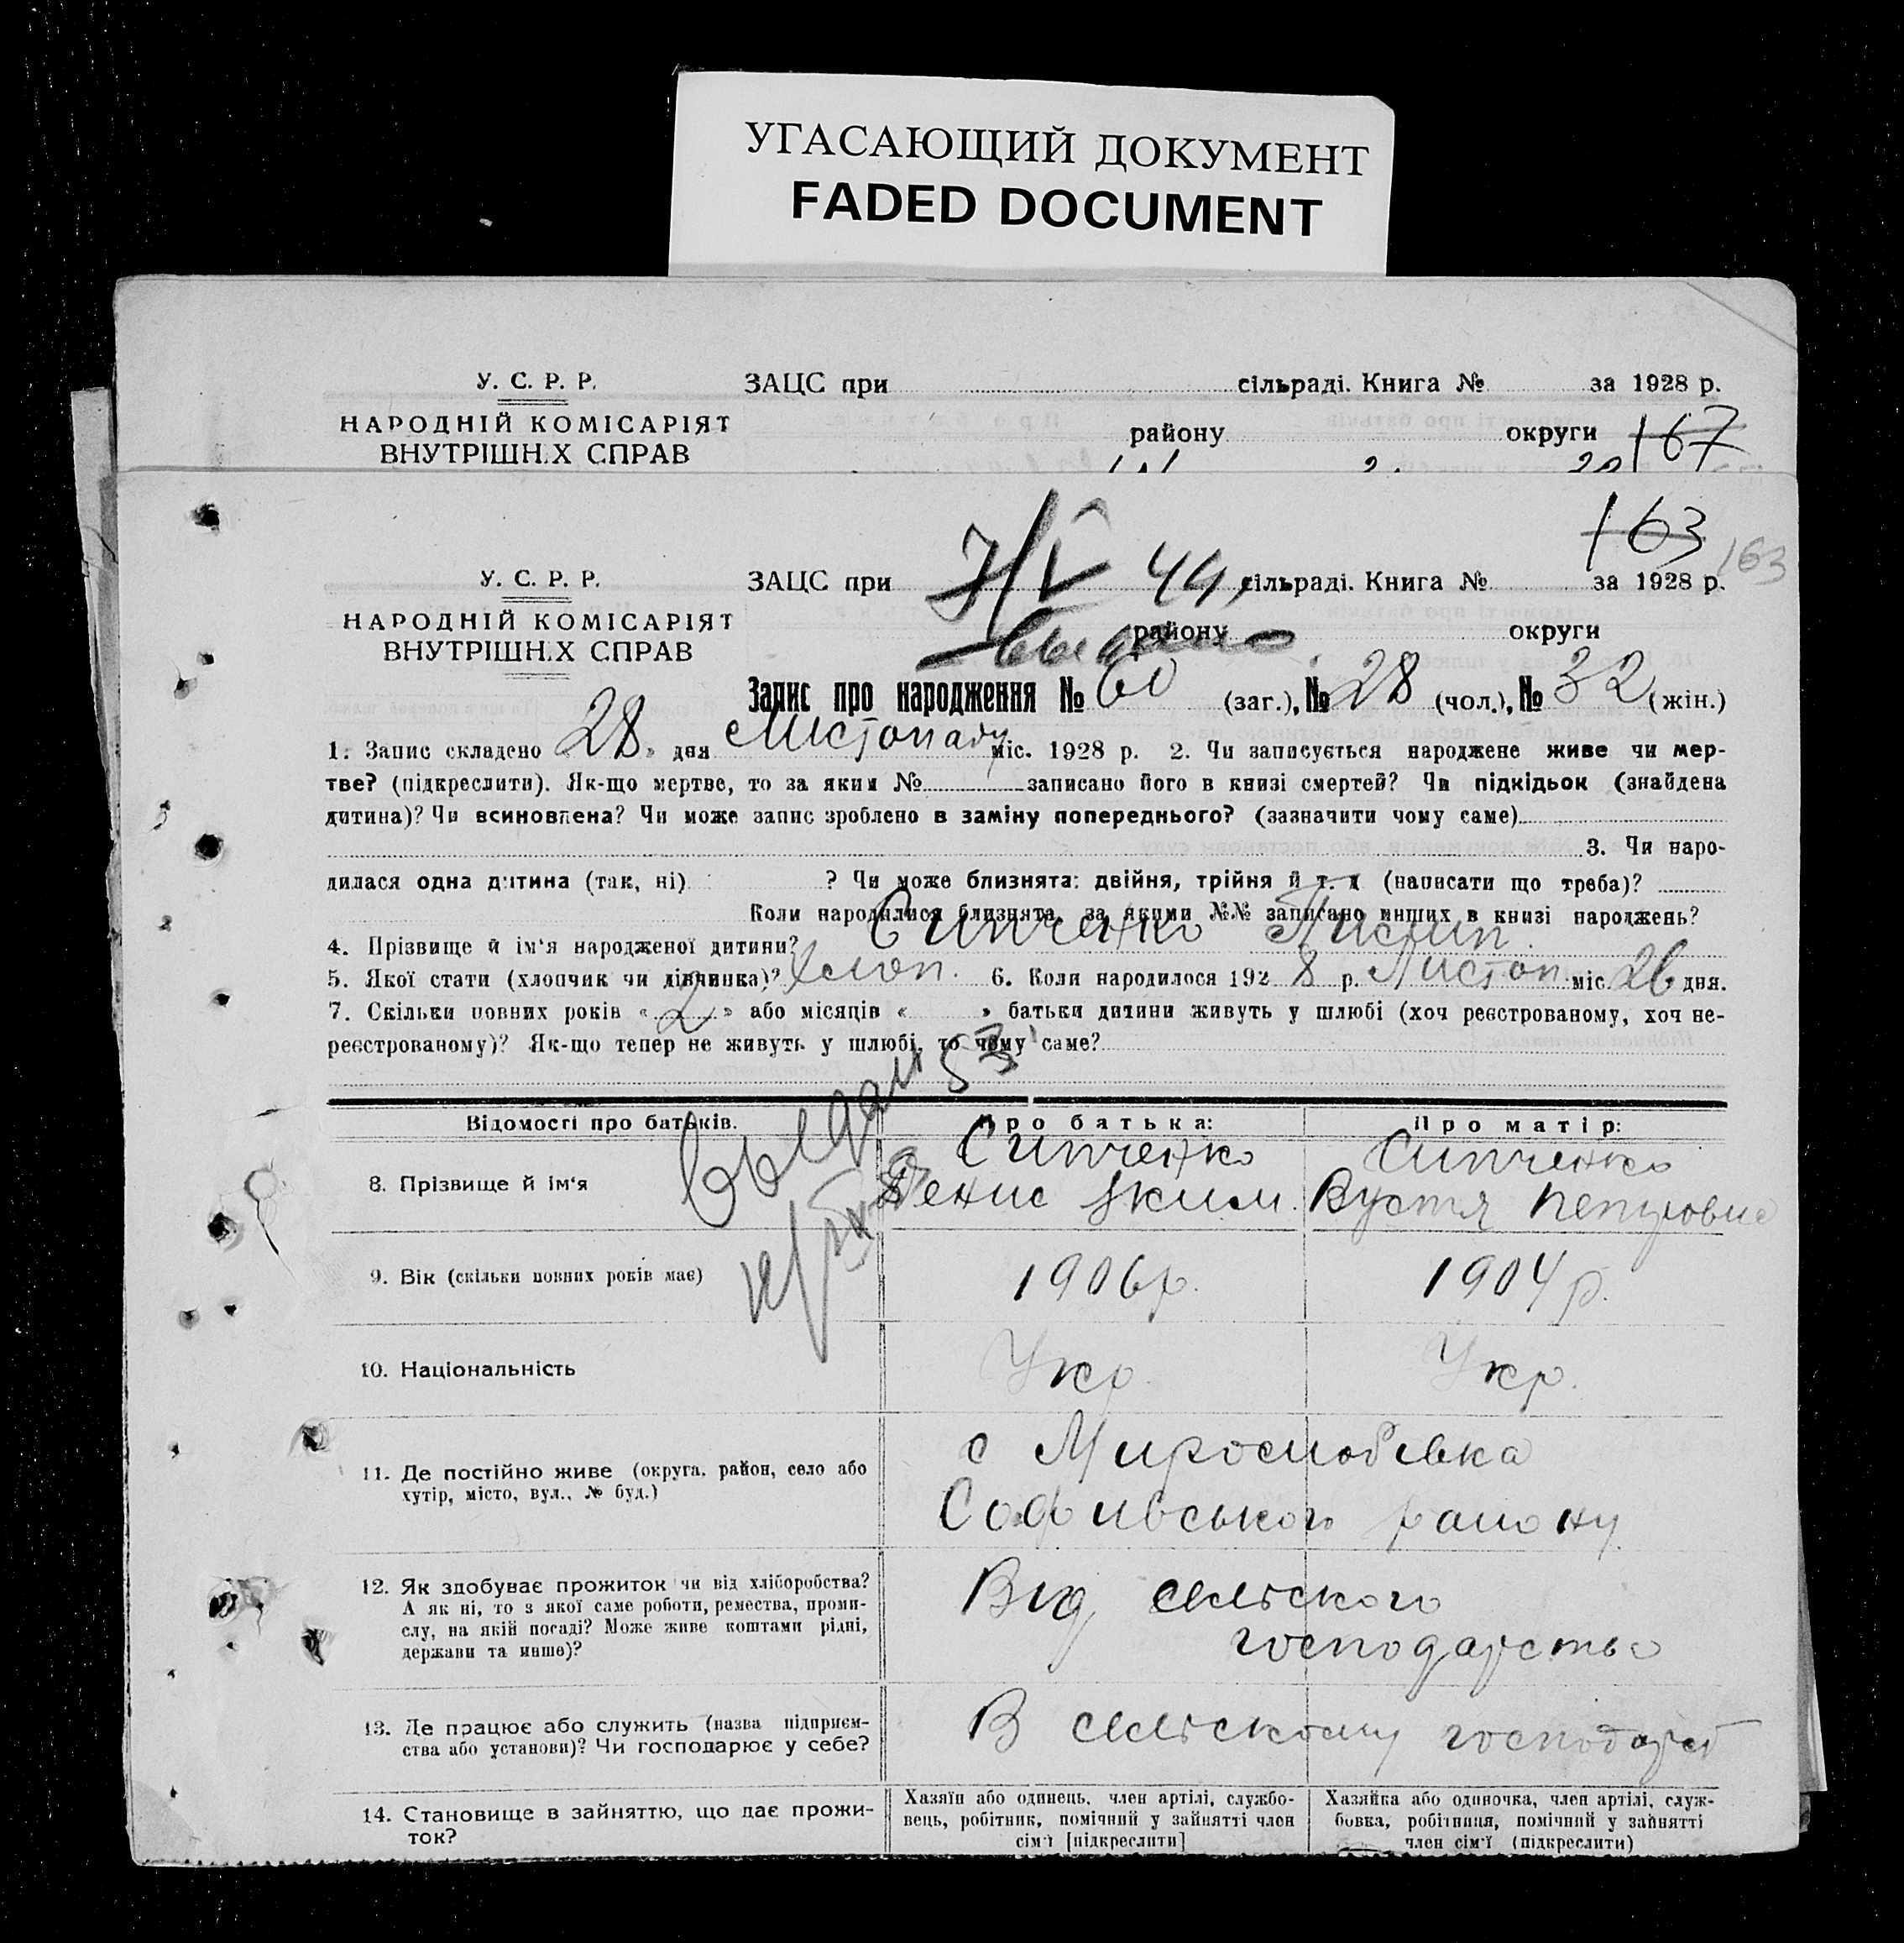 УГАСАЮЩИЙ ДОКУМЕНТ
FADED DOCUMENT
У. С. Р. Р.
НАРОДНІЙ КОМІСАРІЯТ
ВНУТРІШН.Х СПРАВ
ЗАЦС при сільраді. Книга № за 1928 р.
району округи 167
163
163
У. С. Р. Р.
НАРОДНІЙ КОМІСАРІЯТ
ВНУТРІШН.Х СПРАВ
ЗАЦС при 7/V 44 сільраді. Книга № за 1928 р.
району округи
Запис про народження № 60 (заг.), № 28 (чол.), № 32 (жін.)
1. Запис складено 28 » дня Листопаду міс. 1928 р. 2. Чи записується народжене живе чи мер-
тве? (підкреслити). Як-що мертве, то за яким № записано його в книзі смертей? Чи підкідьок (знайдена
дитина)? Чи всиновлена? Чи може запис зроблено в заміну попереднього? (зазначити чому саме)
3. Чи наро-
дилася одна дитина (так, ні) ? Чи може близнята: двійня, трійня й т. д (написати що треба)?
Коли народилися близнята, за якими №№ записано инших в книзі народжень?
4. Прізвище й ім‘я народженої дитини? Сипченко
5. Якої стати (хлопчик чи дівчинка)? Хлоп. 6. Коли народилося 192 8 р. Листоп. міс. 26 дня.
7. Скільки повних років « 2 » або місяців « » батьки дитини живуть у шлюбі (хоч реєстрованому, хоч не-
реєстрованому)? Як-що тепер не живуть у шлюбі, то чому саме?
Відомості про батьків. Про батька: Про матір:
8. Прізвище й ім‘я Сипченко Денис Яким. Сипченко Вустя Петровна
9. Вік (скільки повних років має) 1906 р. 1904 р.
10. Національність Укр. Укр.
11. Де постійно живе (округа, район, село або
хутір, місто, вул., № буд.)
с Миролюбівка
Софиівського району
12. Як здобуває прожиток чи від хліборобства?
А як ні, то з якої саме роботи, ремества, проми-
слу, на якій посаді? Може живе коштами рідні,
держави та инше)?
Від сельского
господарства
13. Де працює або служить (назва підприєм-
ства або установи)? Чи господарює у себе?
В сельскому господарст
14. Становище в зайняттю, що дає прожи-
ток?
Хазяїн або одинець, член артілі, службо-
вець, робітник, помічний у зайнятті член
сім‘ї [підкреслити]
Хазяйка або одиночка, член артілі, служ-
бовка, робітниця, помічний у зайнятті
член сім‘ї (підкреслити)